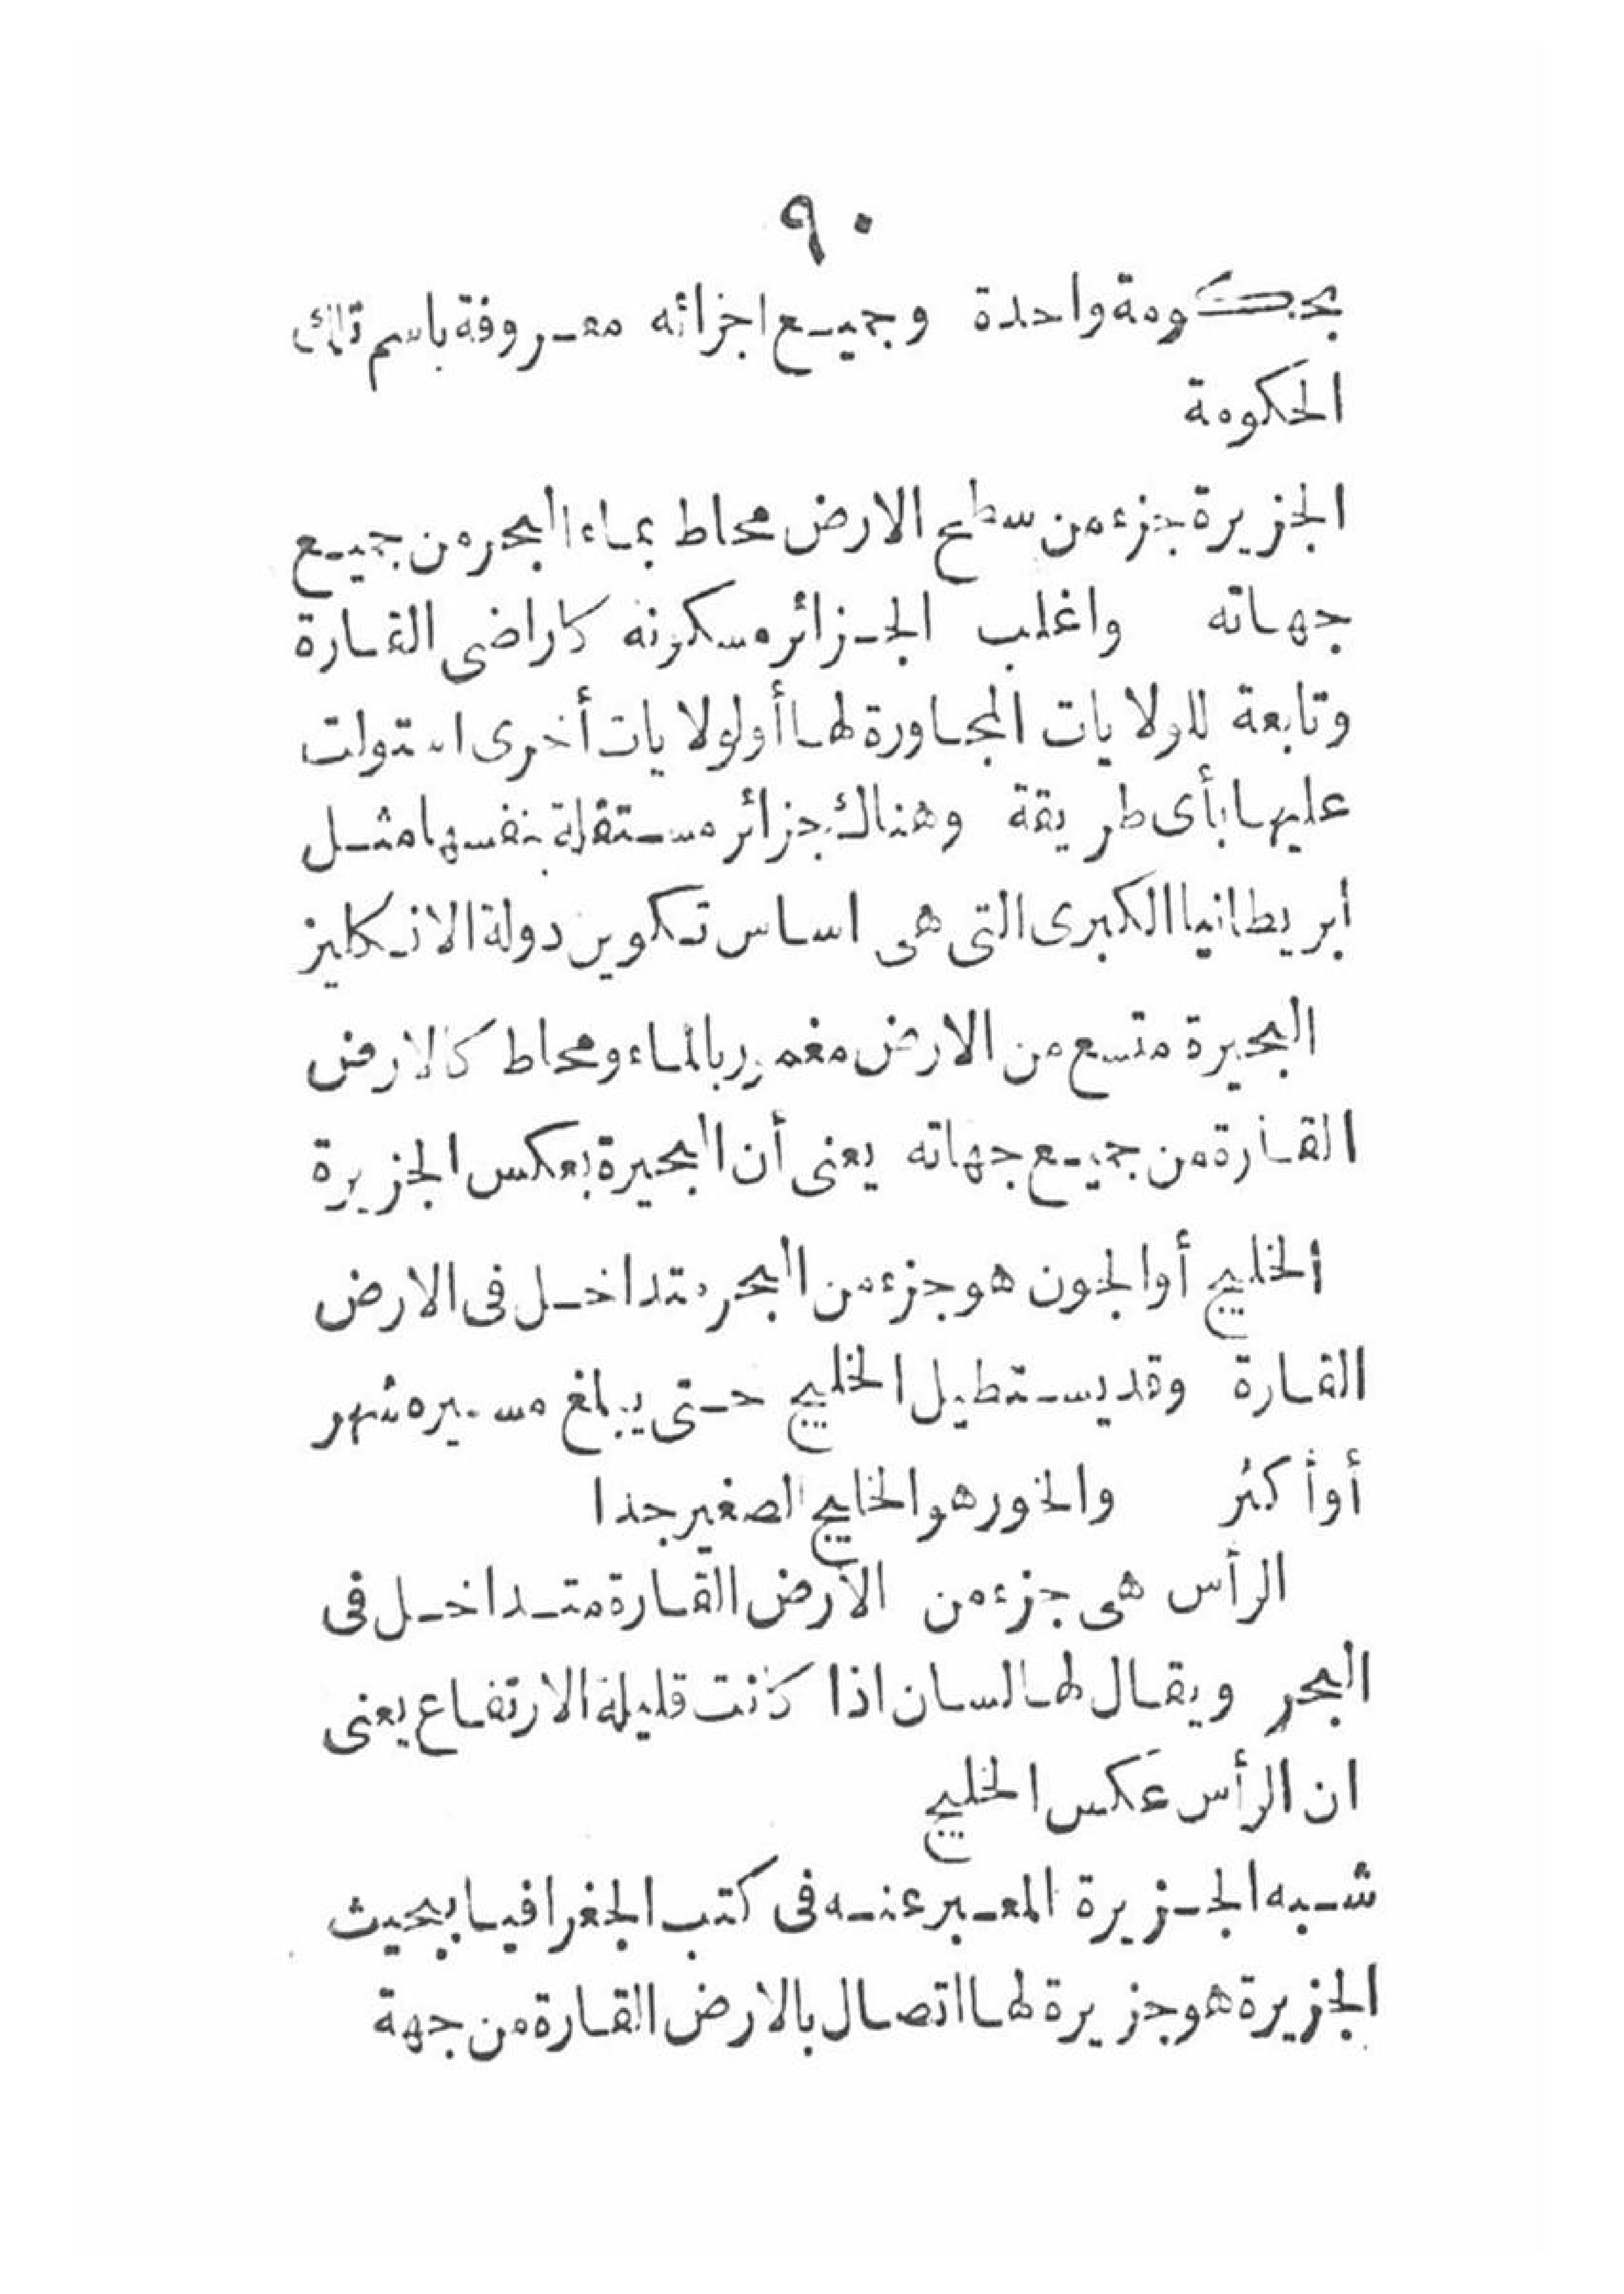 ٩٠
بحكومة واحدة وجميع اجزائه معروفة باسم تلك
الحكومة
الجزيرة جزء من سطح الارض محاط بماء البحر من جميع
جهاته واغلب الجزائر مسكونه كاراضى القارة
وتابعة للولايات المجاورة لها أولولايات أخرى استولت
عليها بأى طريقة وهناك جزائر مستقلة بنفسها مثل
ابريطانيا الكبرى التى هى اساس تكوين دولة الانكليز
البحيرة متسع من الارض مغمور بالماء ومحاط كالارض
القارة من جميع جهاته يعنى أن البحيرة بعكس الجزيرة
الخليج أوالجون هو جزء من البحر متداخل فى الارض
القارة وقد يستطيل الخليج حتى يبلغ مسيره شهر
أوأكثر والخور هو الخليج الصغير جدا
الرأس هى جزء من الأرض القارة متداخل فى
البحر ويقال لها لسان اذا كانت قليلة الارتفاع يعنى
ان الرأس عكس الخليج
شبه الجزيرة المعبر عنه فى كتب الجغرافيا ببحيث
الجزيرة هو جزيرة لها اتصال بالارض القارة من جهة